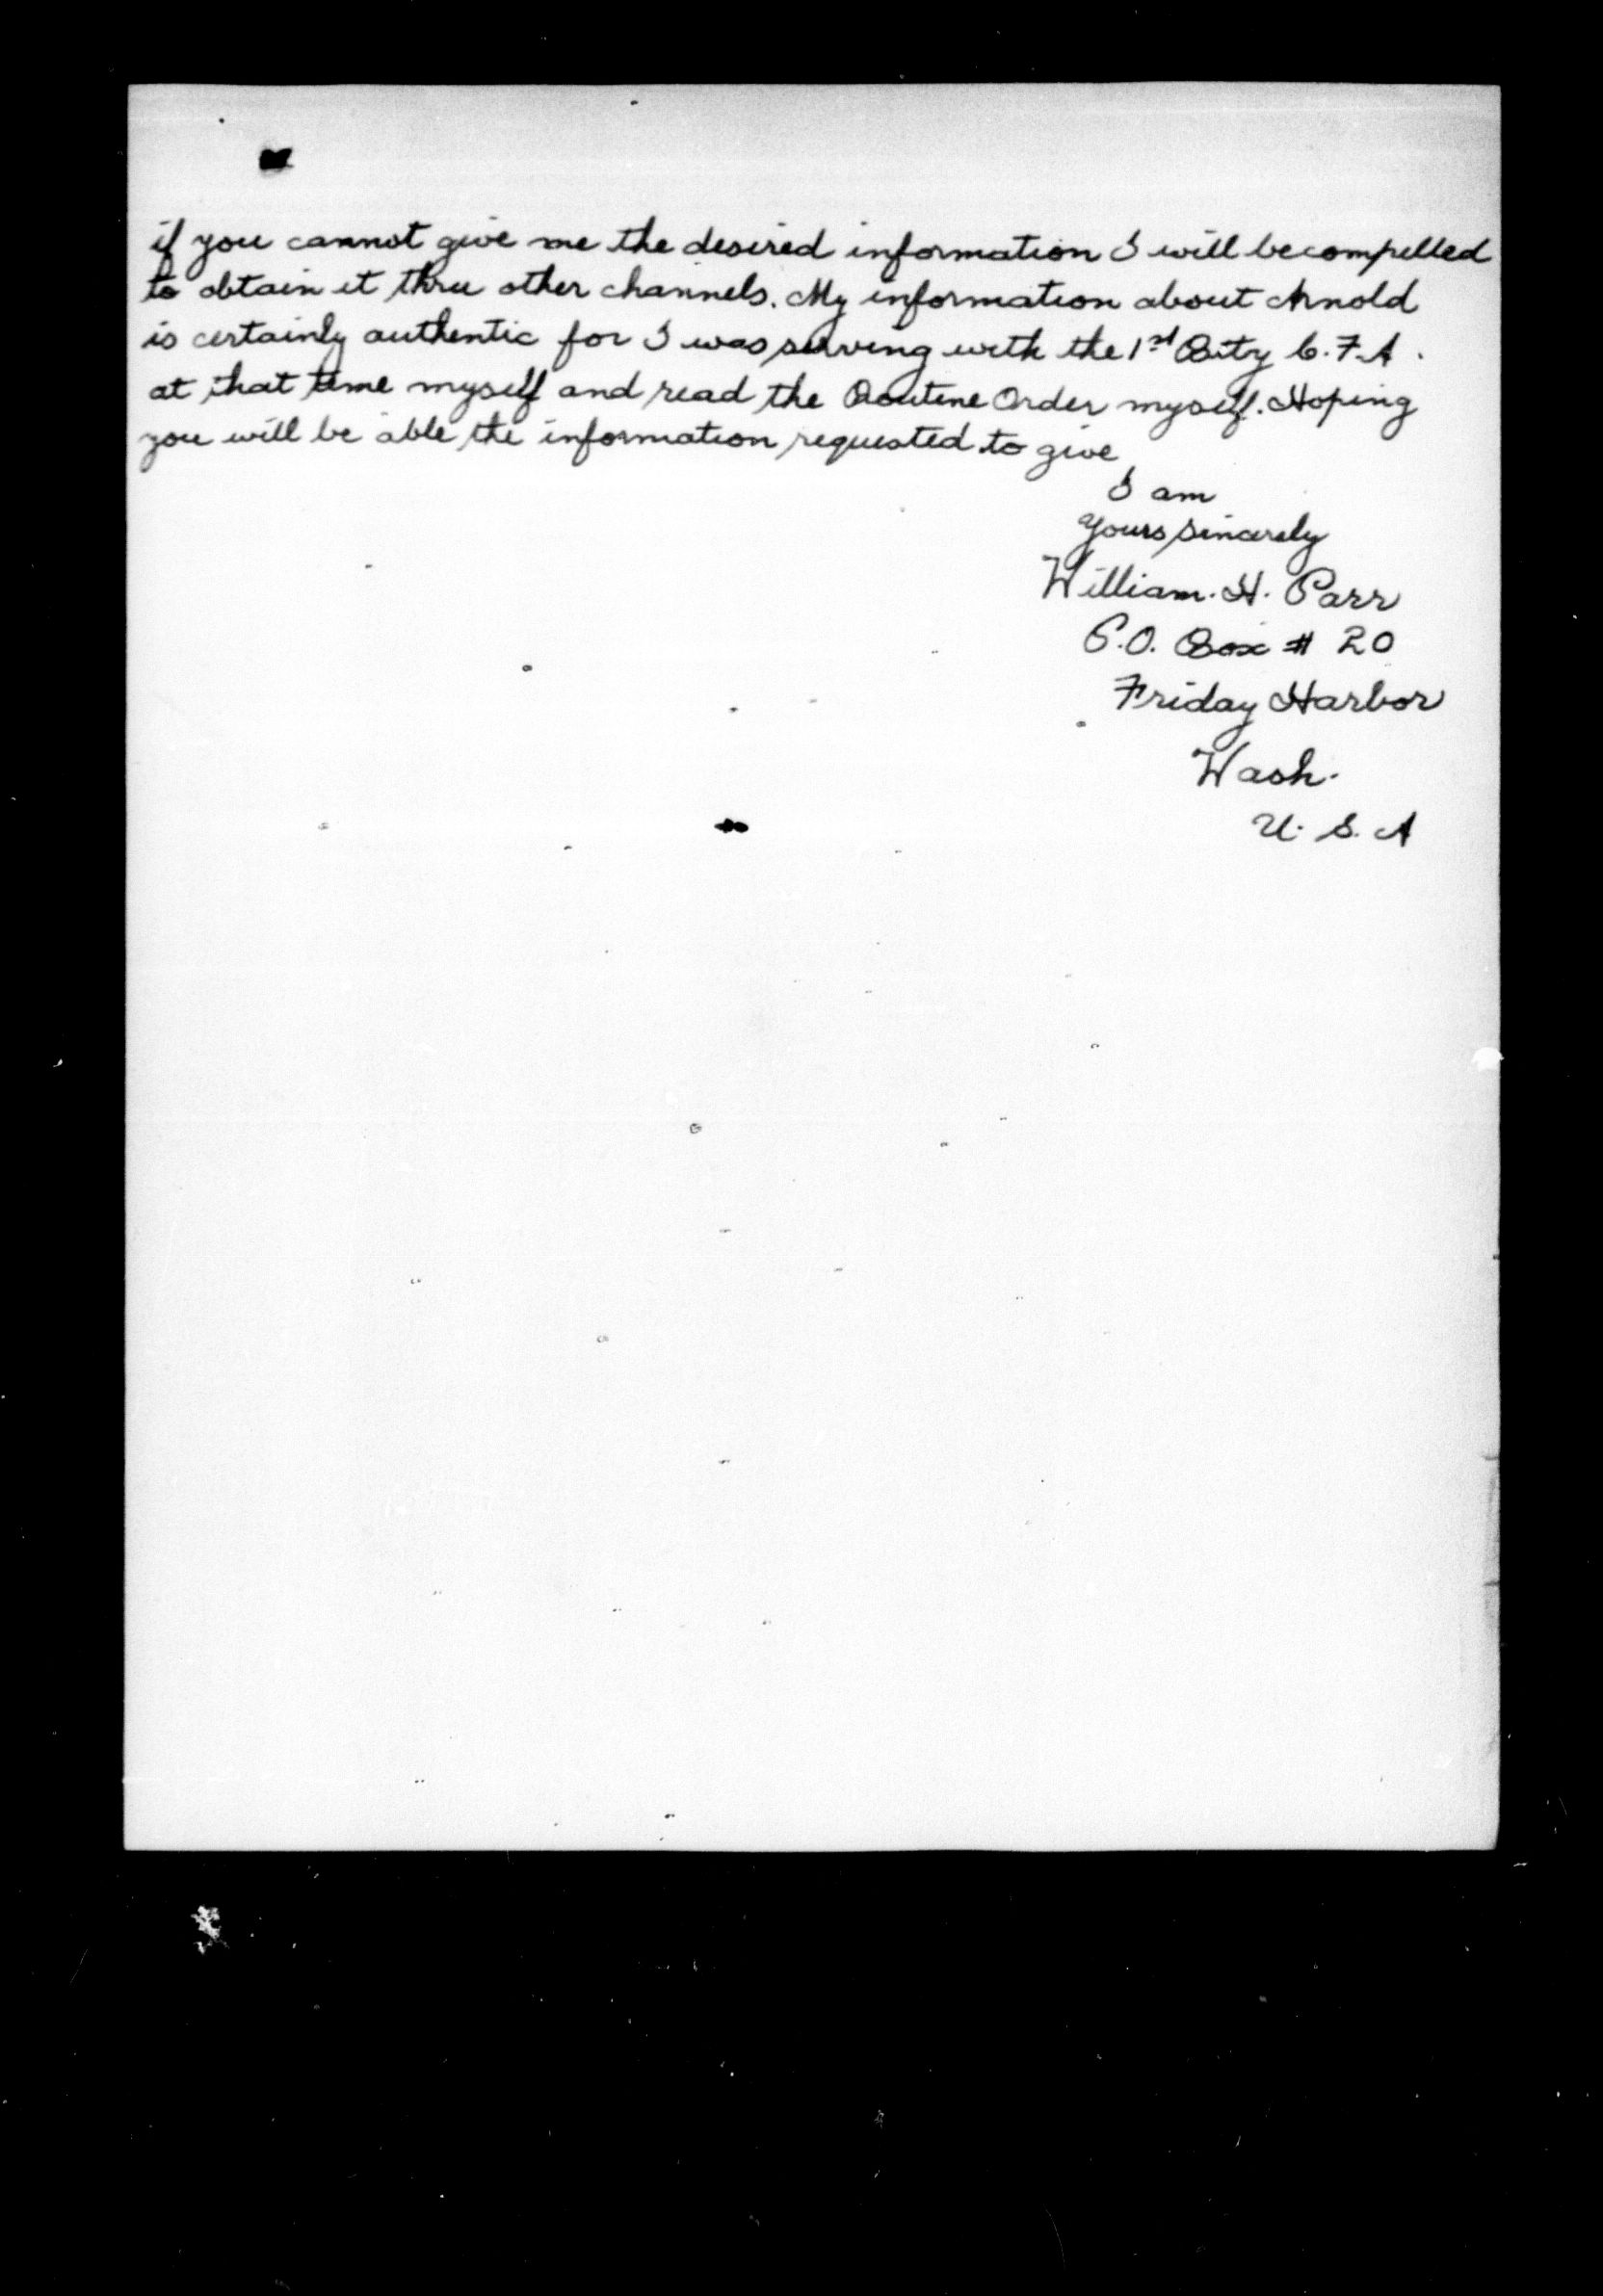 if you cannot give me the desired information I will be compelled
to obtain it thru other channels. My information about Arnold
is certainly authentic for I was serving with the 1st Bty C.F.A.
at that time myself and read the Routine Order myself. Hoping
you will be able the information requested to give
I am
Yours sincerely
William. H. Parr
P.O. Box # 20
Friday Harbor
Wash.
U. S. A